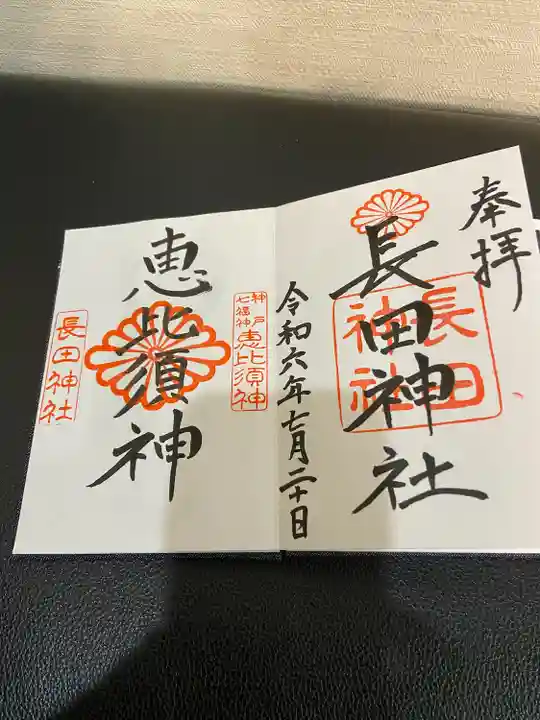 奉拝
長田神社
長田
神社
令和六年七月二十日
神戸
七福神
恵比須神
恵比須神
長田神社